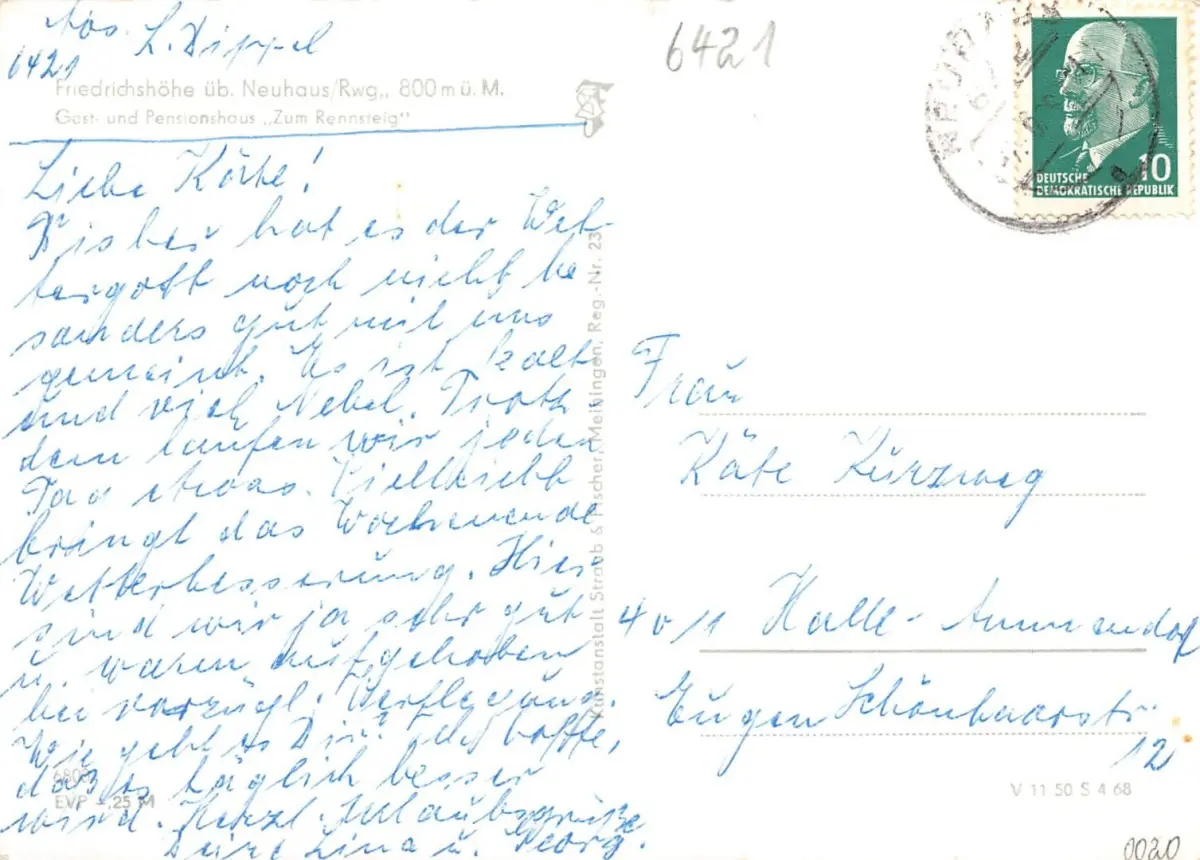 Abs. L. Dippel
6421
Friedrichshöhe üb. Neuhaus/Rwg., 800 m ü. M.
Gast- und Pensionshaus „Zum Rennsteig"
Liebe Käthe!
Bisher hat es der Wet-
tergott noch nicht be
sonders gut mit uns
gemeint. Es ist kalt
und viel Nebel. Trotz-
dem laufen wir jeden
Tag etwas. Vielleicht
bringt das Wochenende
Wetterbesserung. Hier
sind wir ja sehr gut
u. warm aufgehoben
bei vorzügl. Verpflegung.
Wie geht es Dir? Ich hoffe,
daß es täglich besser
wird. Herzl. Urlaubsgrüße
Deine Lina u. Georg.
680
EVP -,25 M
Kunstanstalt Straub & Fischer, Meiningen, Reg.-Nr. 23
6421
DEUTSCHE
DEMOKRATISCHE REPUBLIK
10
Frau
Käte Kurzweg
4011 Halle-Ammendorf
Eugen Schönhaarstr.
12
V 11 50 S 4 68
0020